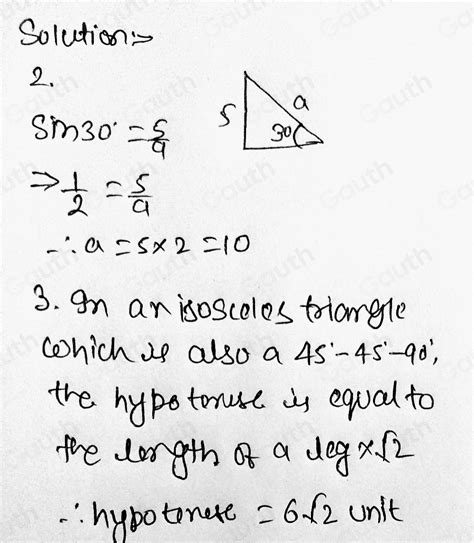 Solution:-
2.
Sin30° = 5/a
5
a
30°
⇒ 1/2 = 5/a
∴ a = 5×2 = 10
3. In an isosceles triangle
which is also a 45°-45°-90°,
the hypotenuse is equal to
the length of a leg × √2
∴ hypotenuse = 6√2 unit
Gauth